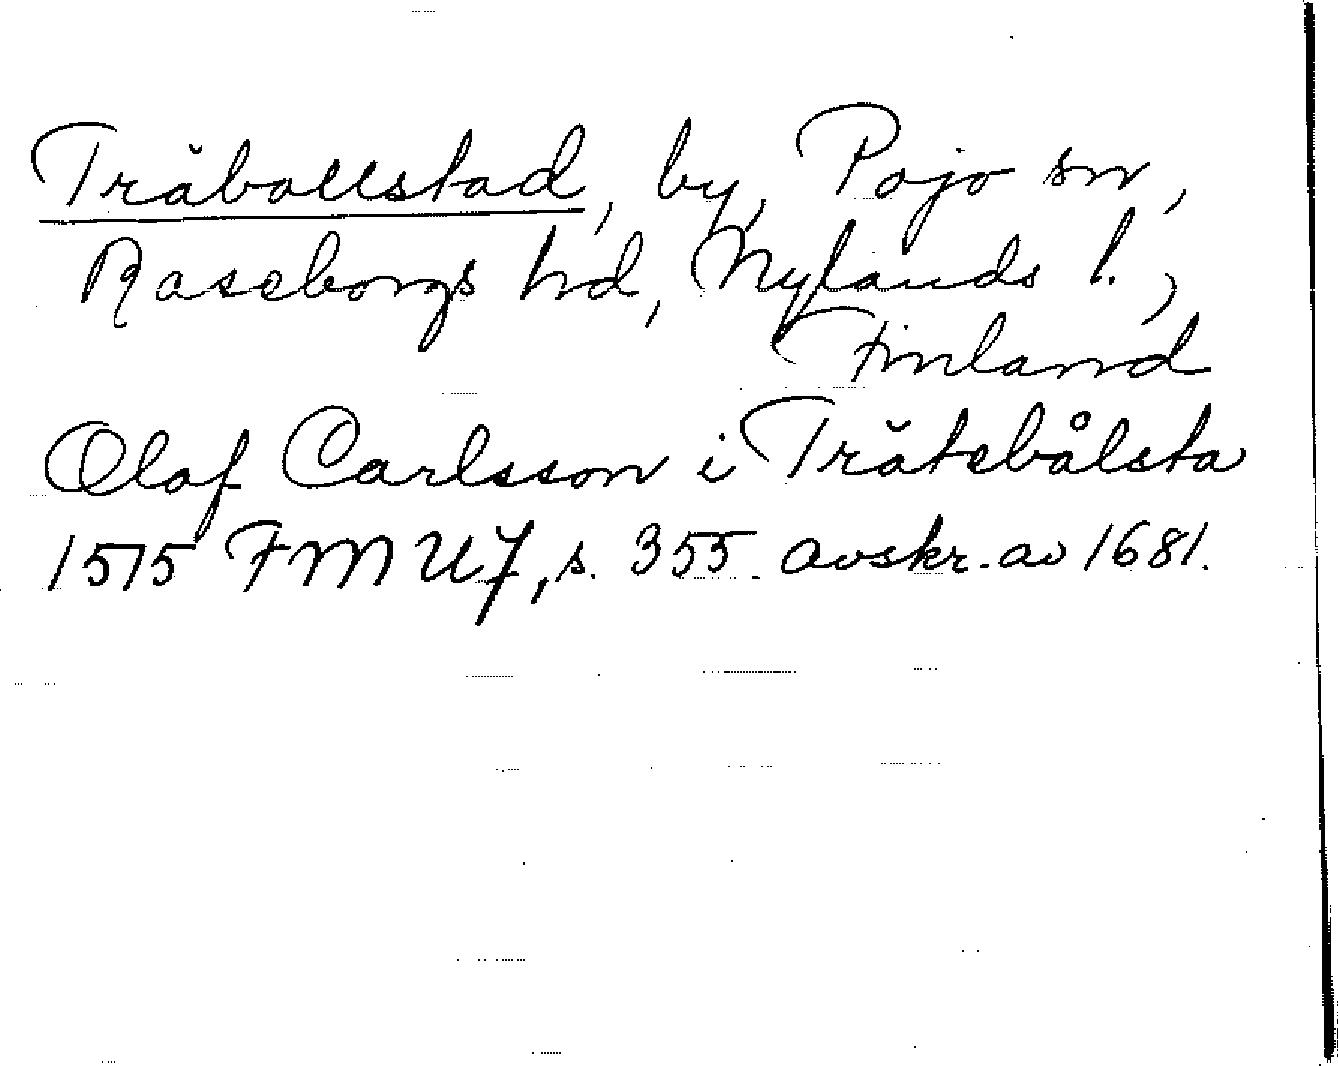 Träbollstad, by, Pojo sn,
Raseborgs hd, Nylands l.,
Finland
Olaf Carlsson i Trätebålsta
1515 FMU 7, s. 355 avskr. av 1681.